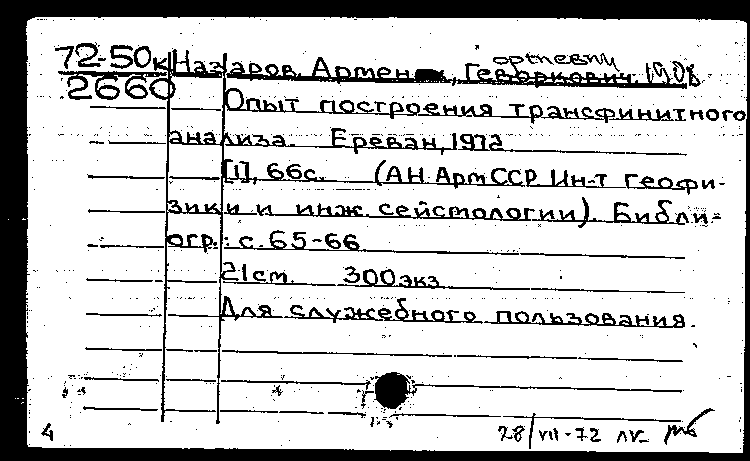 72-50к Назаров, Армен, Геворкович. 1908
2660
Опыт построения трансфинитного
анализа. Ереван, 1972
[1], 66с. (АН АрмССР. Ин-т геофи-
зики и инж. сейсмологии). Библи-
огр.: с. 65-66
21см. 300экз
Для служебного пользования.
4
28/VII-72